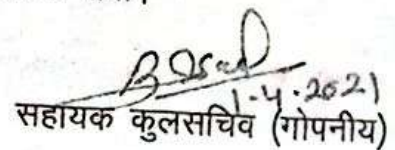 1-4-2021
सहायक कुलसचिव (गोपनीय)